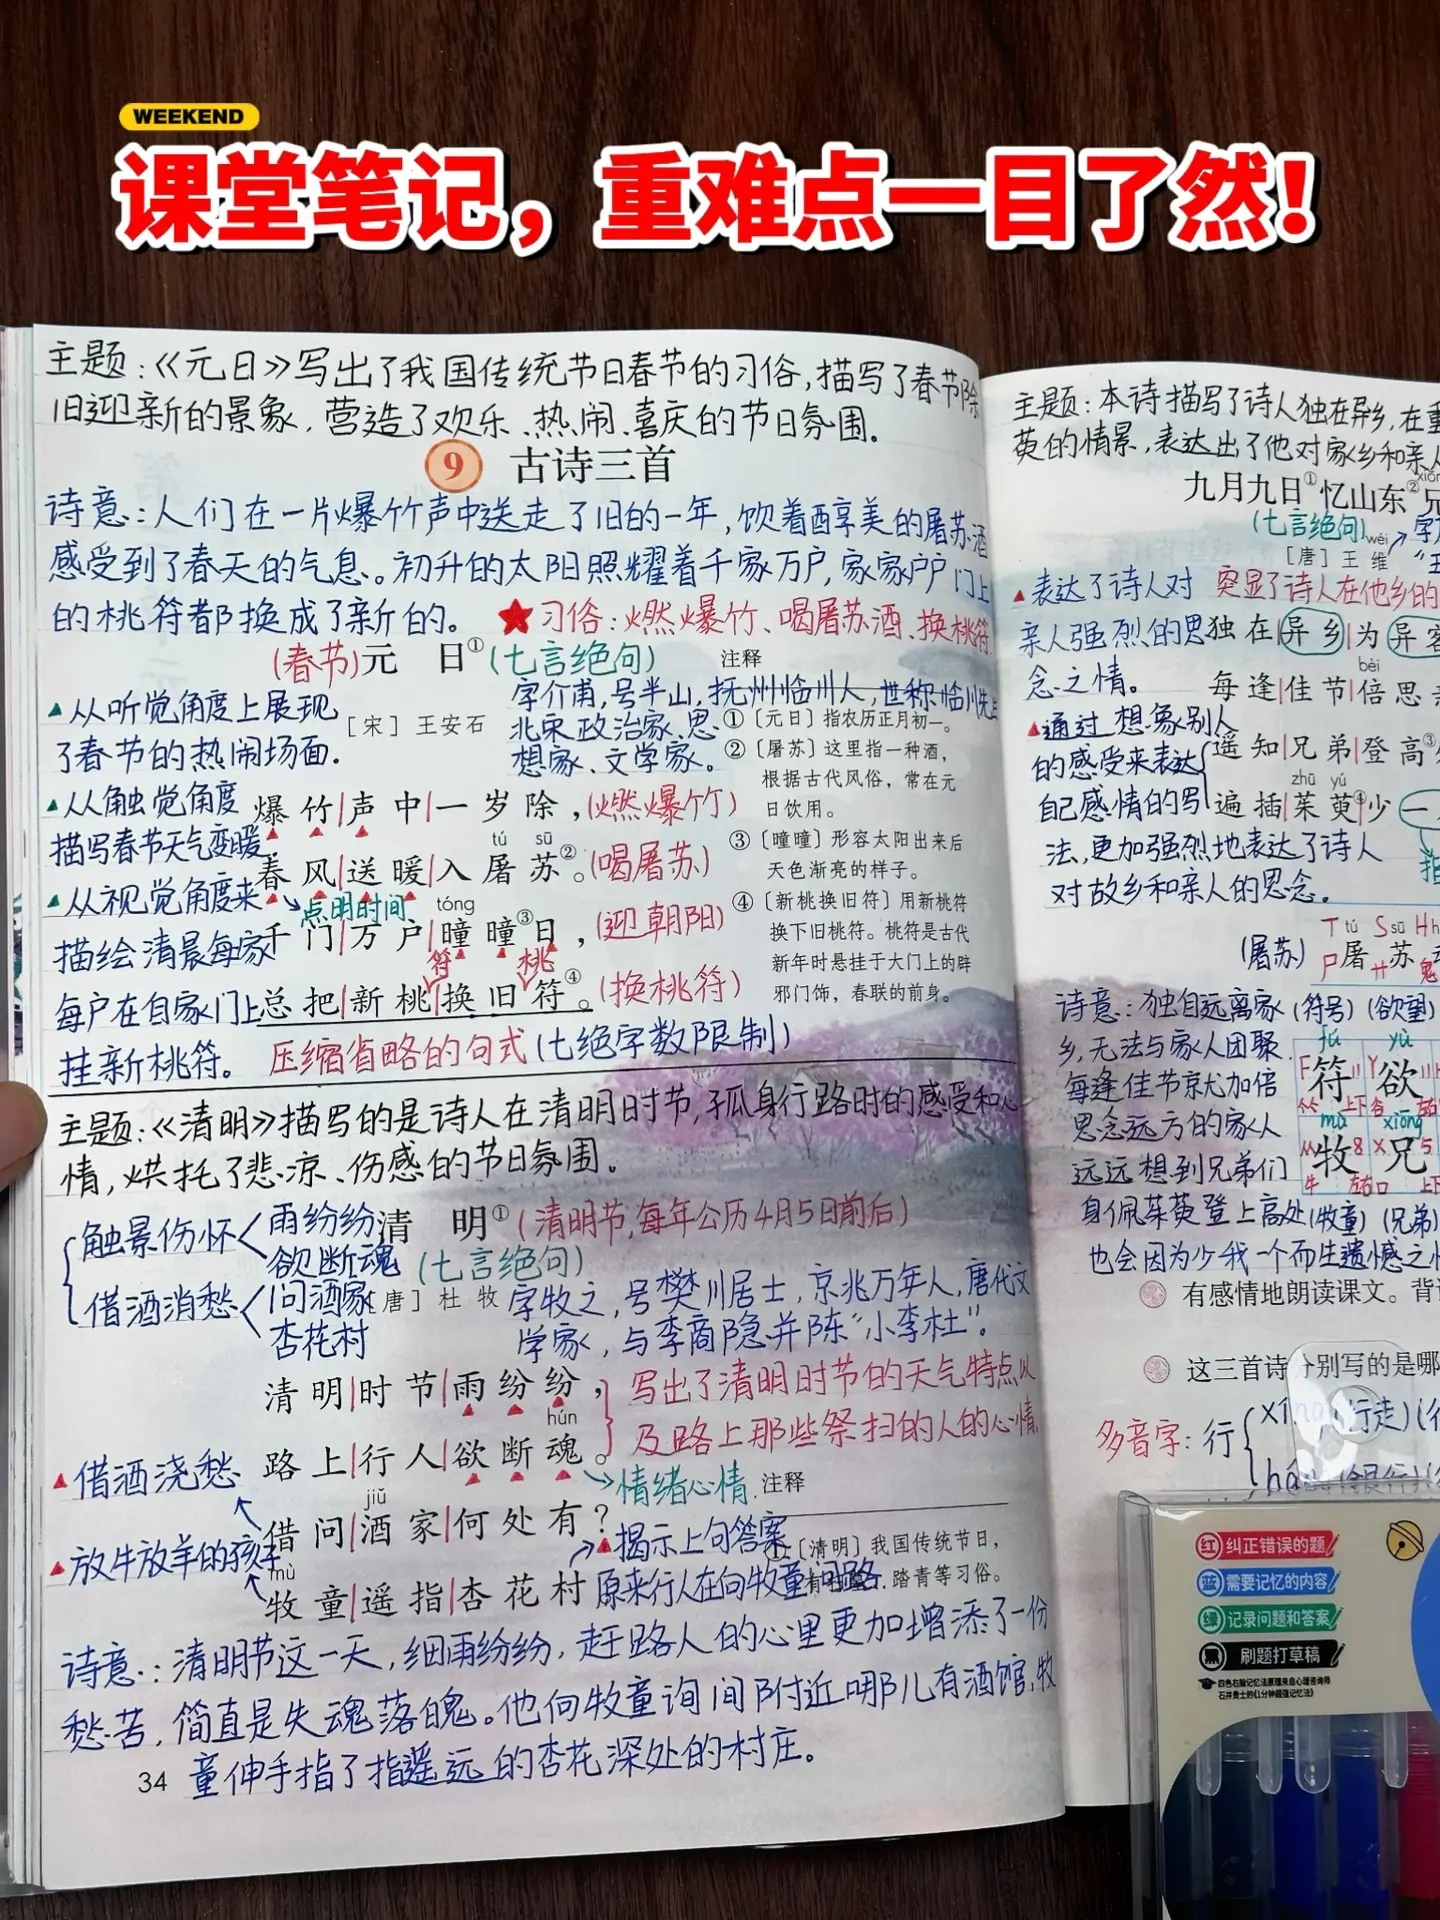 WEEKEND
课堂笔记，重难点一目了然！
主题：《元日》写出了我国传统节日春节的习俗，描写了春节除
旧迎新的景象，营造了欢乐、热闹、喜庆的节日氛围。
9 古诗三首
诗意：人们在一片爆竹声中送走了旧的一年，饮着醇美的屠苏酒
感受到了春天的气息。初升的太阳照耀着千家万户，家家户户门上
的桃符都换成了新的。 ★习俗：燃爆竹、喝屠苏酒、换桃符
(春节)元 日①(七言绝句)
[宋] 王安石
字介甫，号半山，抚州临川人，世称临川先生
北宋政治家、思
想家、文学家。
▲从听觉角度上展现
了春节的热闹场面.
▲从触觉角度
描写春节天气变暖
▲从视觉角度来
描绘清晨每家
每户在自家门上
挂新桃符。
爆竹|声中|一岁除，(燃爆竹)
tú sū
春风|送暖|入屠苏②。(喝屠苏)
点明时间
tóng
千门|万户|曈曈③日，(迎朝阳)
符 桃
总把|新桃|换旧符④。(换桃符)
压缩省略的句式(七绝字数限制)
注释
①〔元日〕指农历正月初一。
②〔屠苏〕这里指一种酒，
根据古代风俗，常在元
日饮用。
③〔曈曈〕形容太阳出来后
天色渐亮的样子。
④〔新桃换旧符〕用新桃符
换下旧桃符。桃符是古代
新年时悬挂于大门上的辟
邪门饰，春联的前身。
主题：《清明》描写的是诗人在清明时节，孤身行路时的感受和心
情，烘托了悲凉、伤感的节日氛围。
触景伤怀 雨纷纷
欲断魂
借酒消愁 问酒家
杏花村
清 明①(清明节，每年公历4月5日前后)
(七言绝句)
[唐] 杜牧
字牧之，号樊川居士，京兆万年人，唐代文
学家，与李商隐并陈"小李杜"。
清明|时节|雨纷纷，
hún
路上|行人|欲断魂。
写出了清明时节的天气特点以
及路上那些祭扫的人的心情.
情绪心情.
▲借酒浇愁
jiǔ
借问|酒家|何处有？
▲放牛放羊的孩子
mù
牧童|遥指|杏花村
▲揭示上句答案
原来行人在向牧童问路
注释
〔清明〕我国传统节日，
踏青等习俗。
诗意：清明节这一天，细雨纷纷，赶路人的心里更加增添了一份
愁苦，简直是失魂落魄。他向牧童询问附近哪儿有酒馆，牧
童伸手指了指遥远的杏花深处的村庄。
34
主题：本诗描写了诗人独在异乡，在重
英的情景，表达出了他对家乡和亲人
九月九日①忆山东②兄
(七言绝句)
wéi
[唐] 王维
▲表达了诗人对
亲人强烈的思
念之情。
突显了诗人在他乡的
独在|异乡|为异客
bèi
每逢|佳节|倍思
▲通过想象别人
的感受来表达
自己感情的写
法，更加强烈地表达了诗人
对故乡和亲人的思念。
遥知|兄弟|登高③
zhū yú
遍插|茱萸④少一
(屠苏)
T tú S sū H h
尸屠 艹苏
诗意：独自远离家
乡，无法与家人团聚.
每逢佳节就尤加倍
思念远方的家人
远远想到兄弟们
身佩茱萸登上高处
也会因为少我一个而生遗憾之
(符号) (欲望)
fú yù
符 欲
mù xiōng
牧 兄
(牧童) (兄弟)
有感情地朗读课文。背
这三首诗分别写的是哪
多音字：行 xíng(行走)
háng(银行)
红 纠正错误的题
蓝 需要记忆的内容
绿 记录问题和答案
黑 刷题打草稿
四色右脑记忆法原理来自心理咨询师
石井贵士的《1分钟超强记忆法》